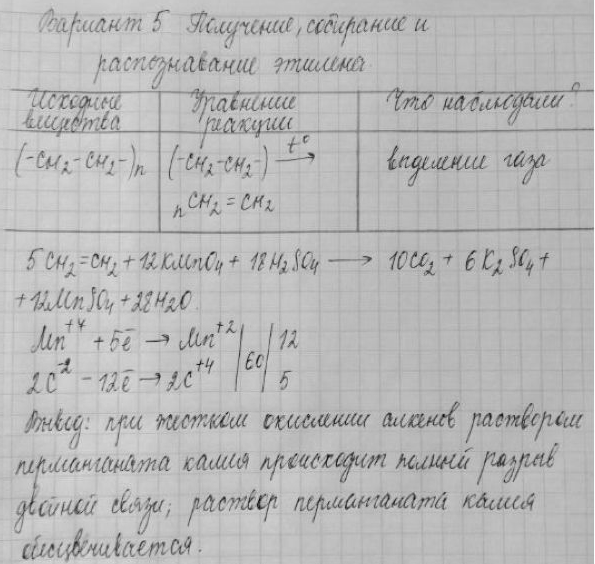 Вариант 5 Получение, собирание и
распознавание этилена.
Исходные вещества | Уравнение реакции | Что наблюдали?
(-CH₂-CH₂-)n | (-CH₂-CH₂-) —t°→ | выделение газа
nCH₂=CH₂
5CH₂=CH₂ + 12KMnO₄ + 18H₂SO₄ ⟶ 10CO₂ + 6K₂SO₄ +
+ 12MnSO₄ + 28H₂O.
Mn⁺⁷ + 5ē → Mn⁺² | 60 | 12
2C⁻² - 12ē → 2C⁺⁴ | | 5
Вывод: при жестком окислении алкенов раствором
перманганата калия происходит полный разрыв
двойной связи; раствор перманганата калия
обесцвечивается.